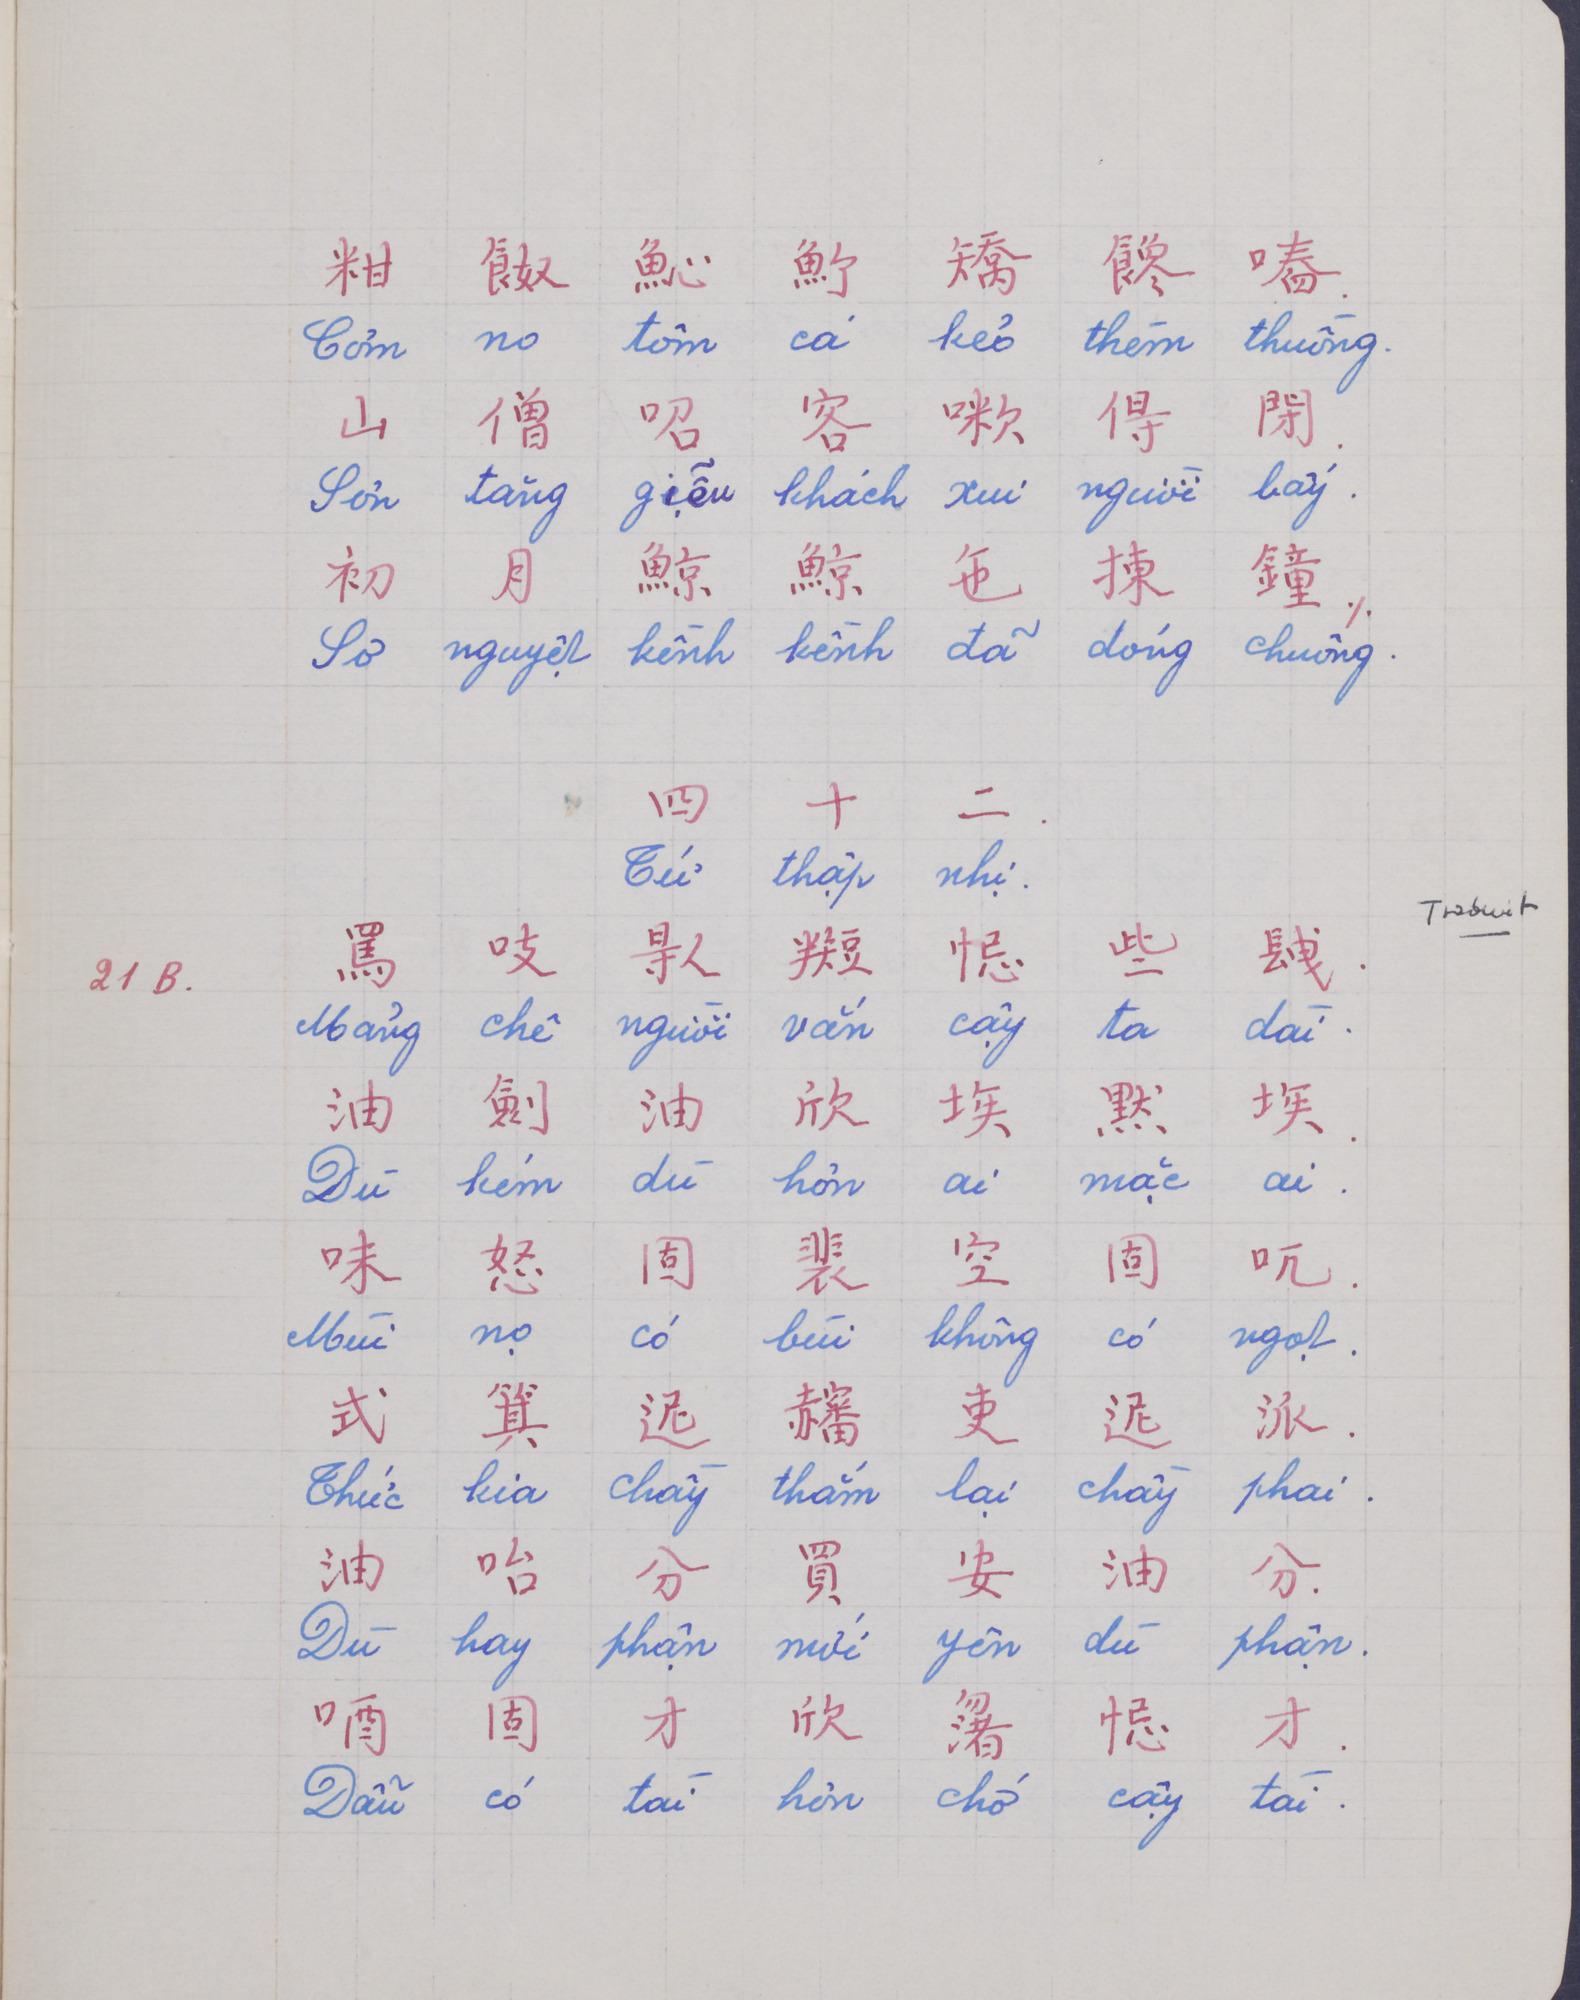 粓 𩛂 𩵽 𩵜 矯 饞 𠽔.
Cơm no tôm cá kẻo thèm thuồng.
山 僧 招 客 𠶗 得 閉.
Sơn tăng giệu khách xui người bấy.
初 月 鯨 鯨 㐌 揀 鐘 ⁒
Sơ nguyệt kềnh kềnh đã dóng chuông.
四 十 二.
Tứ thập nhị.
Trabuit
21 B.
罵 吱 㝵 𥐆 忌 些 𨱽.
Mảng chê người vắn cậy ta dài.
油 劍 油 欣 埃 默 埃.
Dù kém dù hơn ai mặc ai.
味 怒 固 裴 空 固 吭.
Mùi nọ có bùi không có ngọt.
式 箕 迡 𧹿 吏 迡 派.
Thức kia chầy thắm lại chầy phai.
油 咍 分 買 安 油 分.
Dù hay phận mới yên dù phận.
唒 固 才 欣 渚 忌 才.
Dẫu có tài hơn chớ cậy tài.